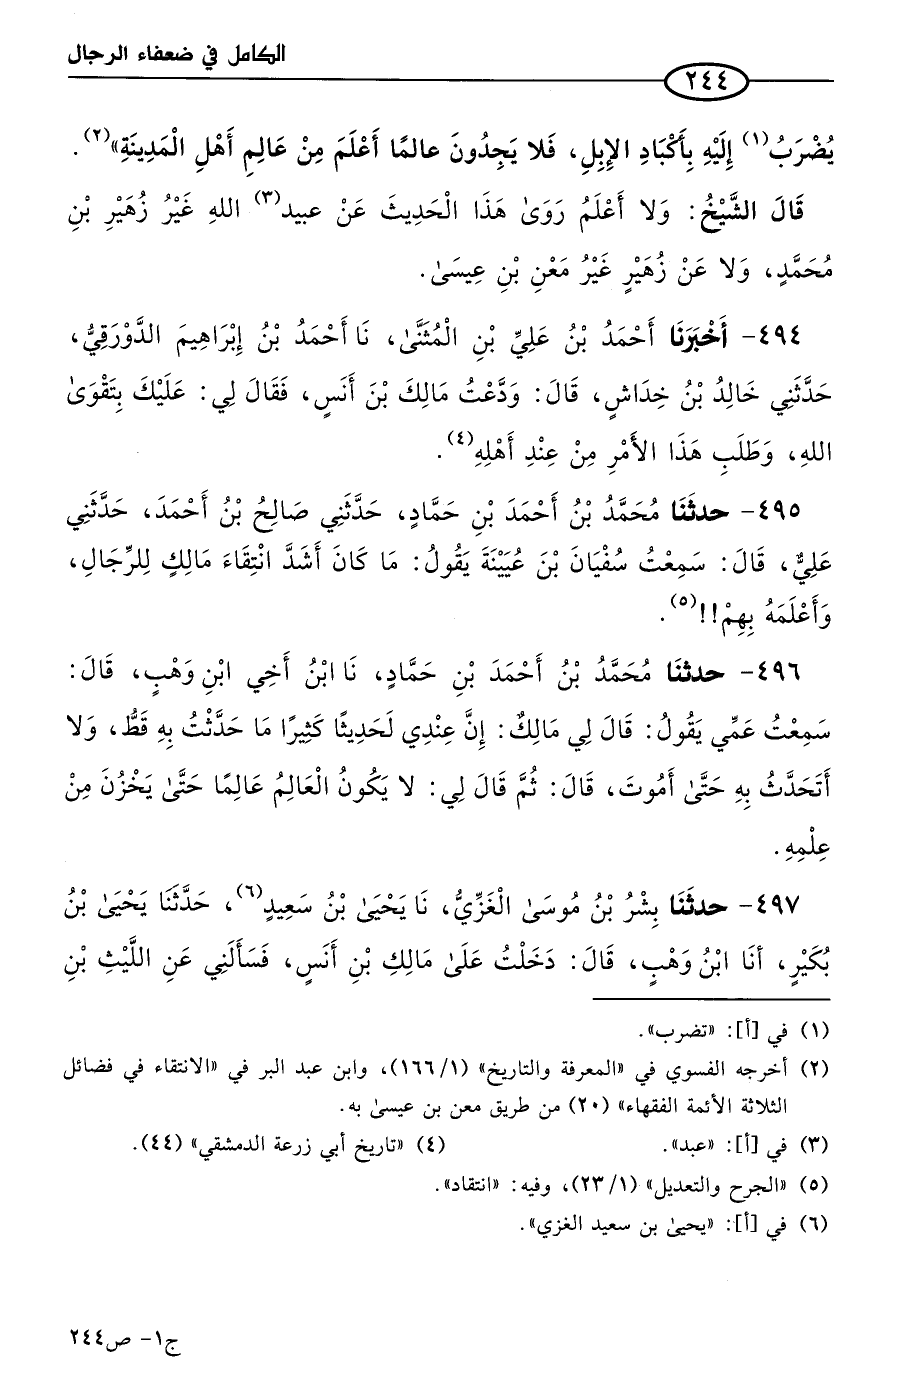 الكامل في ضعفاء الرجال
٢٤٤
يُضْرَبُ(١) إِلَيْهِ بِأَكْبَادِ الإِبِلِ، فَلا يَجِدُونَ عالمًا أَعْلَمَ مِنْ عَالِمِ أَهْلِ الْمَدِينَةِ»(٢).
قَالَ الشَّيْخُ: وَلا أَعْلَمُ رَوَىٰ هَذَا الْحَدِيثَ عَنْ عبيد(٣) اللهِ غَيْرُ زُهَيْرِ بْنِ
مُحَمَّدٍ، وَلا عَنْ زُهَيْرٍ غَيْرُ مَعْنِ بْنِ عِيسَىٰ.
٤٩٤- أَخْبَرَنَا أَحْمَدُ بْنُ عَلِيِّ بْنِ الْمُثَنَّىٰ، نَا أَحْمَدُ بْنُ إِبْرَاهِيمَ الدَّوْرَقِيُّ،
حَدَّثَنِي خَالِدُ بْنُ خِدَاشٍ، قَالَ: وَدَّعْتُ مَالِكَ بْنَ أَنَسٍ، فَقَالَ لِي: عَلَيْكَ بِتَقْوَىٰ
اللهِ، وَطَلَبِ هَذَا الأَمْرِ مِنْ عِنْدِ أَهْلِهِ(٤).
٤٩٥- حدثَنَا مُحَمَّدُ بْنُ أَحْمَدَ بْنِ حَمَّادٍ، حَدَّثَنِي صَالِحُ بْنُ أَحْمَدَ، حَدَّثَنِي
عَلِيٌّ، قَالَ: سَمِعْتُ سُفْيَانَ بْنَ عُيَيْنَةَ يَقُولُ: مَا كَانَ أَشَدَّ انْتِقَاءَ مَالِكٍ لِلرِّجَالِ،
وَأَعْلَمَهُ بِهِمْ!!(٥).
٤٩٦- حدثنَا مُحَمَّدُ بْنُ أَحْمَدَ بْنِ حَمَّادٍ، نَا ابْنُ أَخِي ابْنِ وَهْبٍ، قَالَ:
سَمِعْتُ عَمِّي يَقُولُ: قَالَ لِي مَالِكٌ: إِنَّ عِنْدِي لَحَدِيثًا كَثِيرًا مَا حَدَّثْتُ بِهِ قَطُّ، وَلا
أَتَحَدَّثُ بِهِ حَتَّىٰ أَمُوتَ، قَالَ: ثُمَّ قَالَ لِي: لا يَكُونُ الْعَالِمُ عَالِمًا حَتَّىٰ يَخْزُنَ مِنْ
عِلْمِهِ.
٤٩٧- حدثَنَا بِشْرُ بْنُ مُوسَىٰ الْغَزِّيُّ، نَا يَحْيَىٰ بْنُ سَعِيدٍ(٦)، حَدَّثَنَا يَحْيَىٰ بْنُ
بُكَيْرٍ، أَنَا ابْنُ وَهْبٍ، قَالَ: دَخَلْتُ عَلَىٰ مَالِكِ بْنِ أَنَسٍ، فَسَأَلَنِي عَنِ اللَّيْثِ بْنِ
(١) في [أ]: «تضرب».
(٢) أخرجه الفسوي في «المعرفة والتاريخ» (١٦٦/١)، وابن عبد البر في «الانتقاء في فضائل
الثلاثة الأئمة الفقهاء» (٢٠) من طريق معن بن عيسىٰ به.
(٣) في [أ]: «عبد». (٤) «تاريخ أبي زرعة الدمشقي» (٤٤).
(٥) «الجرح والتعديل» (٢٣/١)، وفيه: «انتقاد».
(٦) في [أ]: «يحيىٰ بن سعيد الغزي».
ج١- ص٢٤٤